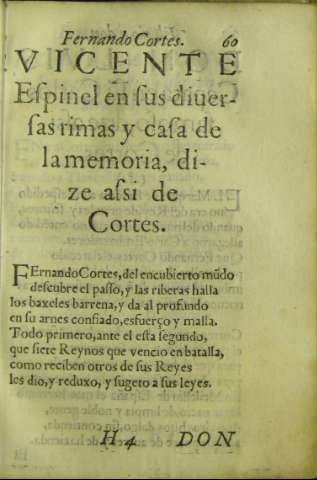 Fernando Cortes. 60
VICENTE
Eſpinel en ſus diuer-
ſas rimas y caſa de
la memoria, di-
ze aſsi de
Cortes.
FErnando Cortes, del encubierto mũdo
deſcubre el paſſo, y las riberas halla
los baxeles barrena, y da al profundo
en ſu arnes confiado, esfuerço y malla.
Todo primero, ante el eſta ſegundo,
que ſiete Reynos que vencio en batalla,
como reciben otros de sus Reyes
les dio, y reduxo, y ſugeto a ſus leyes.
H 4 DON